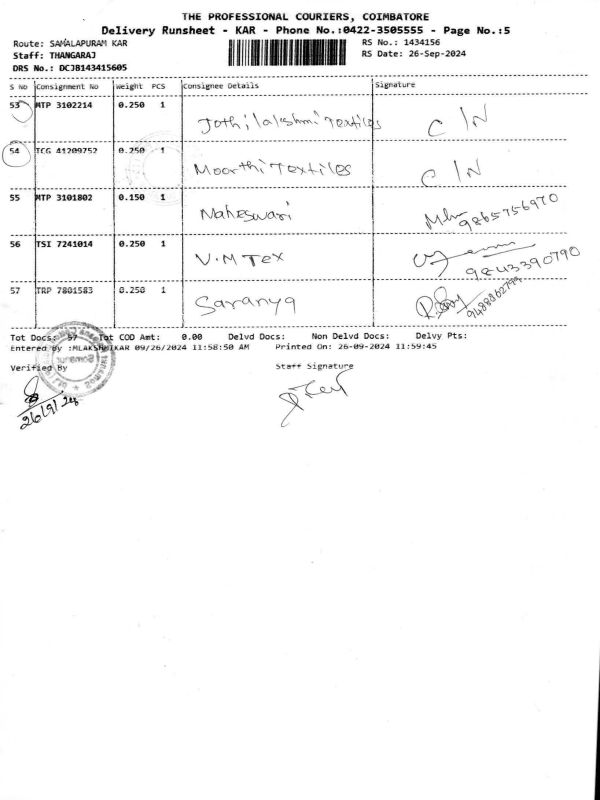 THE PROFESSIONAL COURIERS, COIMBATORE
Delivery Runsheet - KAR - Phone No.:0422-3505555 - Page No.:5
Route: SAMALAPURAM KAR RS No.: 1434156
Staff: THANGARAJ RS Date: 26-Sep-2024
DRS No.: DCJB143415605
S No Consignment No Weight PCS Consignee Details Signature
53 MTP 3102214 0.250 1 Jothilalshmi Textiles C/N
54 TCG 41209752 0.250 1 Moorthi Textiles C/N
55 MTP 3101802 0.150 1 Maheswari 9865756970
56 TSI 7241014 0.250 1 V.M Tex 9843390790
57 TRP 7801583 0.250 1 Saranya
Tot Docs: 57 Tot COD Amt: 0.00 Delvd Docs: Non Delvd Docs: Delvy Pts:
Entered By :MLAKSHMIKAR 09/26/2024 11:58:50 AM Printed On: 26-09-2024 11:59:45
Verified By Staff Signature
26/9/24